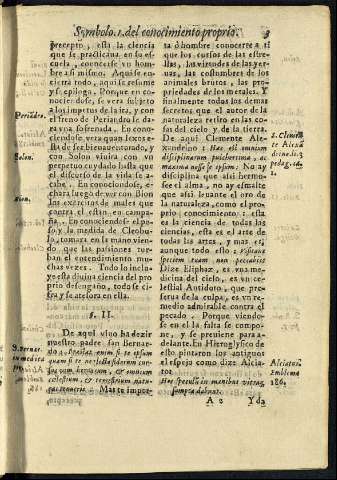 Symbolo. 1. del conocimiento proprio. 3
precepto, esta la ciencia
que se practicaua en su es-
cuela, conocerse vn hom-
bre assi mismo. Aqui se en-
cierra todo, aqui se resume
y se epiloga. Porque en co-
nociendose, se vera subjeto
a los impetus de la ira, y con
el freno de Periandro se da-
ra vna sofrenada. En cono-
ciendose vera quan lexos es-
ta de ser bienauenturado, y
con Solon viuira con vn
perpetuo cuydado hasta que
el discurso de la vida se aca-
be. En conociendose, e-
chara luego de ver con Bion
los exercitos de males que
contra el estan en campa-
ña. En conociendose el pe-
so y la medida de Cleobu-
lo, tomara en la mano vien-
do que las passiones tur-
ban el entendimiento mu-
chas vezes. Todo lo inclu-
ye esta diuina ciencia del pro
prio desengaño, todo se ci-
fra y se atesora en ella.
§. II
De aqui vino ha dezir
nuestro padre san Bernar-
do.
Mas te impor-
Periandro.
Solon.
Bion.
S. Bernar.
ta ò hombre conocerte a ti
que los cursos de las estre-
llas, las virtudes de las yer-
uas, las costumbres de los
animales brutos, las pro-
priedades de los metales. Y
finalmente todos los demas
secretos que el autor de la
naturaleza retiro en las co-
sas del cielo y de la tierra.
De aqui Clemente Ale-
xandrino: Hæc est omnium
disciplinarum pulcherrima, ac
maxima nosse se ipsum: No ay
disciplina que assi hermo-
see el alma, no ay esmalte
que assi leuante el oro de
la naturaleza, como el pro-
prio conocimiento: esta
es la ciencia de todas las
ciencias, esta es el arte de
todas las artes, y mas es;
aunque todo ello: Visitans
speciem tuam non peccabis
Dize Eliphaz, es vna me-
dicina del cielo, es vn ce-
lestial Antidoto, que pre-
serua de la culpa, es vn re-
medio admirable contra el
pecado. Porque viendo-
se en el la falta se compo-
ne, y se preuiene para a-
delante. En Hieroglyfico de
esto pintaron los antiguos
el espejo como dize Alcia-
to:
Hoc speculum in manibus vitrea,
A 2 Yda
S. Clemen
te Alexā
drino li. 3
pedag. ca.
1.
Alciatus
Emblema
186.